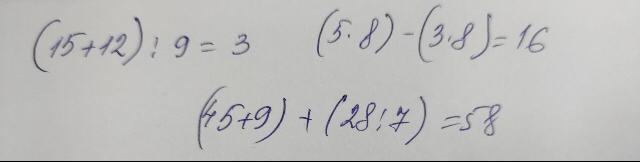 (15+12) : 9 = 3 (5·8)-(3·8)=16
(45+9) + (28:7) =58